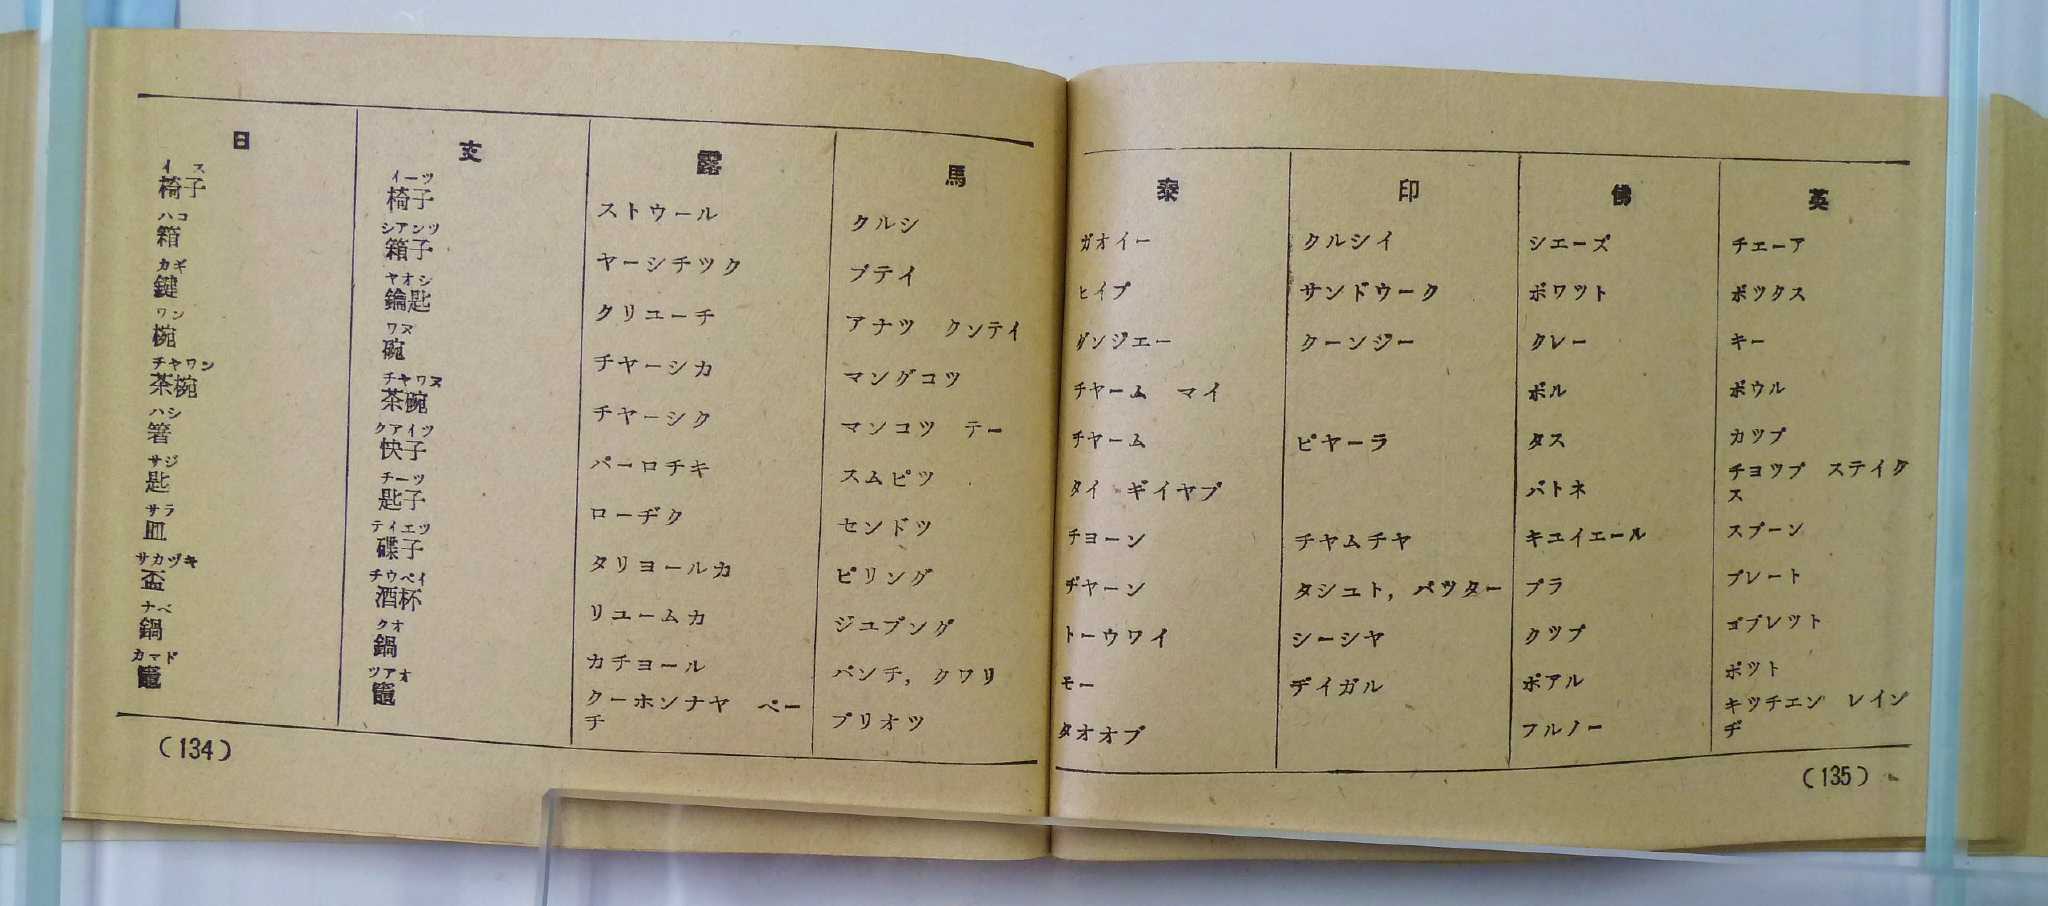 日
イス
椅子
ハコ
箱
カギ
鍵
ワン
椀
チヤワン
茶椀
ハシ
箸
サジ
匙
サラ
皿
サカヅキ
盃
ナベ
鍋
カマド
竈
支
イーツ
椅子
シアンツ
箱子
ヤオシ
鑰匙
ワヌ
碗
チヤワヌ
茶碗
クアイツ
快子
チーツ
匙子
テイエツ
碟子
チウペイ
酒杯
クオ
鍋
ツアオ
竈
露
ストウール
ヤーシチツク
クリユーチ
チヤーシカ
チヤーシク
パーロチキ
ローヂク
タリヨールカ
リユームカ
カチヨール
クーホンナヤ ペー
チ
馬
クルシ
プテイ
アナツ クンテイ
マングコツ
マンコツ テー
スムピツ
センドツ
ピリング
ジユブング
パンチ, クワリ
プリオツ
泰
ガオイー
ヒイプ
ダンジエー
チヤーム マイ
チヤーム
タイ ギイヤプ
チヨーン
ヂヤーン
トーウワイ
モー
タオオブ
印
クルシイ
サンドウーク
クーンジー
ピヤーラ
チヤムチヤ
タシユト, バツター
シーシヤ
デイガル
佛
シエーズ
ボワツト
クレー
ボル
タス
バトネ
キユイエール
プラ
クツプ
ポアル
フルノー
英
チエーア
ボツクス
キー
ボウル
カツプ
チヨツプ ステイク
ス
スプーン
プレート
ゴブレツト
ポツト
キツチエン レイン
ヂ
(134)
(135)